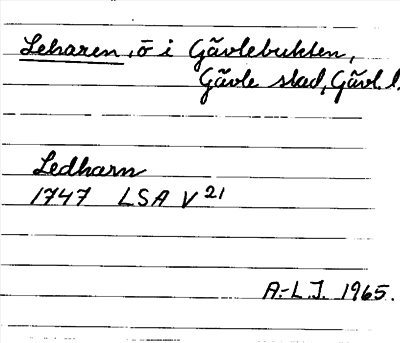 Leharen, ö i Gävlebukten,
Gävle stad, Gävl. l.
Ledharn
1747 LSA V 21
A.-L. J. 1965.